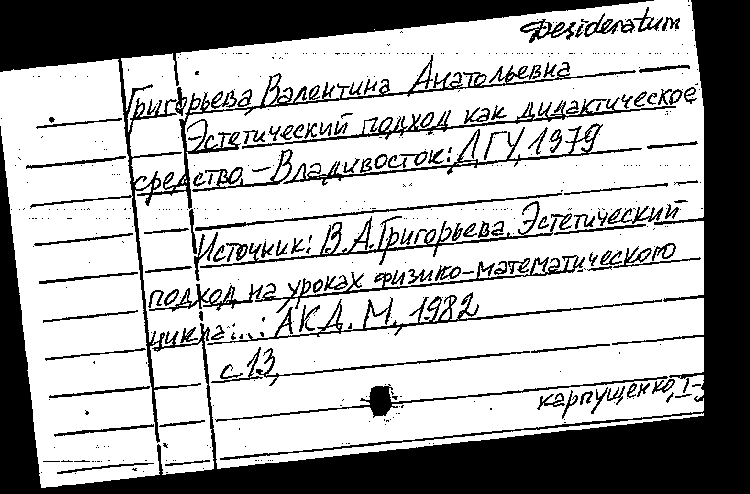 Desideratum
Григорьева, Валентина Анатольевна
Эстетический подход как дидактическое
средство. – Владивосток: ДГУ, 1979
Источник: В.А.Григорьева. Эстетический
подход на уроках физико-математического
цикла...: АКД. М., 1982
с 13,
карпущенко,